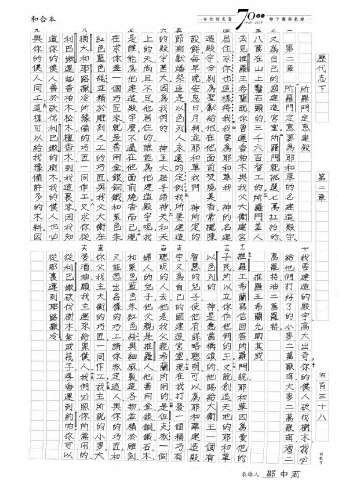 和合本
台北靈糧堂
70
歷代志下
第二章
五百三十八
所羅門定意建殿
第二章 所羅門定意要為耶和華的名建造殿宇
又為自己的國建造宮室所羅門就挑選七萬扛抬的
八萬在山上鑿石頭的三千六百督工的所羅門差人
去見推羅王希蘭說你曾運香柏木與我父大衛建宮
居住求你也這樣待我我要為耶和華我 神的名建造
殿宇分別為聖獻給他在他面前焚燒美香常擺陳
設餅每早晚安息日月朔並耶和華我們 神所定的
節期獻燔祭這是以色列人永遠的定例我所要建造
的殿宇甚大因為我們的 神至大超乎諸神天和天
上的天尚且不足他居住的誰能為他建造殿宇呢我
是誰能為他建造殿宇麼不過在他面前燒香而已現
在求你差一個巧匠來就是善用金銀銅鐵和紫色朱
紅色藍色線並精於雕刻之工的巧匠與我父大衛在
猶大和耶路撒冷所預備的巧匠一同作工又求你從
利巴嫩運些香柏木松木檀香木到我這裏來因我知
道你的僕人善於砍伐利巴嫩的樹木我的僕人也必
與你的僕人同工這樣可以給我預備許多的木料因
十我要建造的殿宇高大出奇你的僕人砍伐樹木我必
給他們打好了的小麥二萬歌珥大麥二萬歌珥酒二
萬罷特油二萬罷特
推羅王希蘭允助其成
推羅王希蘭寫信回答所羅門說耶和華因為愛他的
子民所以立你作他們的王又說創造天地的耶和華
以色列的 神是應當稱頌的他賜給大衛王一個有
智慧的兒子使他有謀略聰明可以為耶和華建造殿
宇又為自己的國建造宮室現在我打發一個精巧有
聰明的人去他是我父親希蘭所用的是但支派一個
婦人的兒子他父親是推羅人他善用金銀銅鐵石木
和紫色藍色朱紅色線與細麻製造各物並精於雕刻
又能想出各樣的巧工請你派定這人與你的巧匠和
你父我主大衛的巧匠一同作工我主所說的小麥大
麥酒油願我主運來給眾僕人我們必照你所需用的
從利巴嫩砍伐樹木紮成筏子浮海運到約帕你可以
從那裏運到耶路撒冷
恭錄人 鄧中于